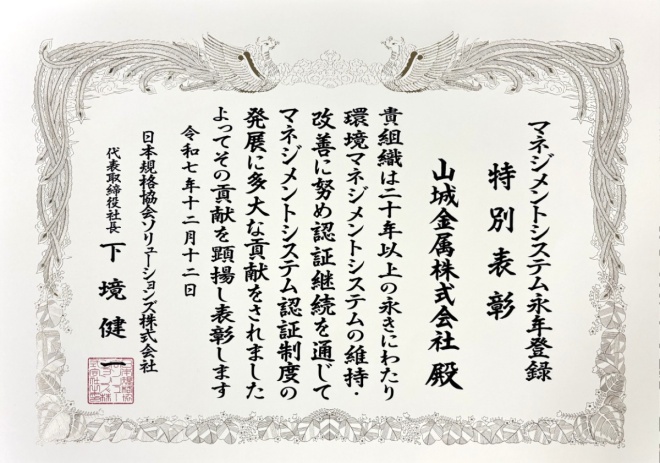 マネジメントシステム永年登録
特別表彰
山城金属株式会社 殿
貴組織は二十年以上の永きにわたり
環境マネジメントシステムの維持・
改善に努め認証継続を通じて
マネジメントシステム認証制度の
発展に多大な貢献をされました
よってその貢献を顕揚し表彰します
令和七年十二月十二日
日本規格協会ソリューションズ株式会社
代表取締役社長 下境健一